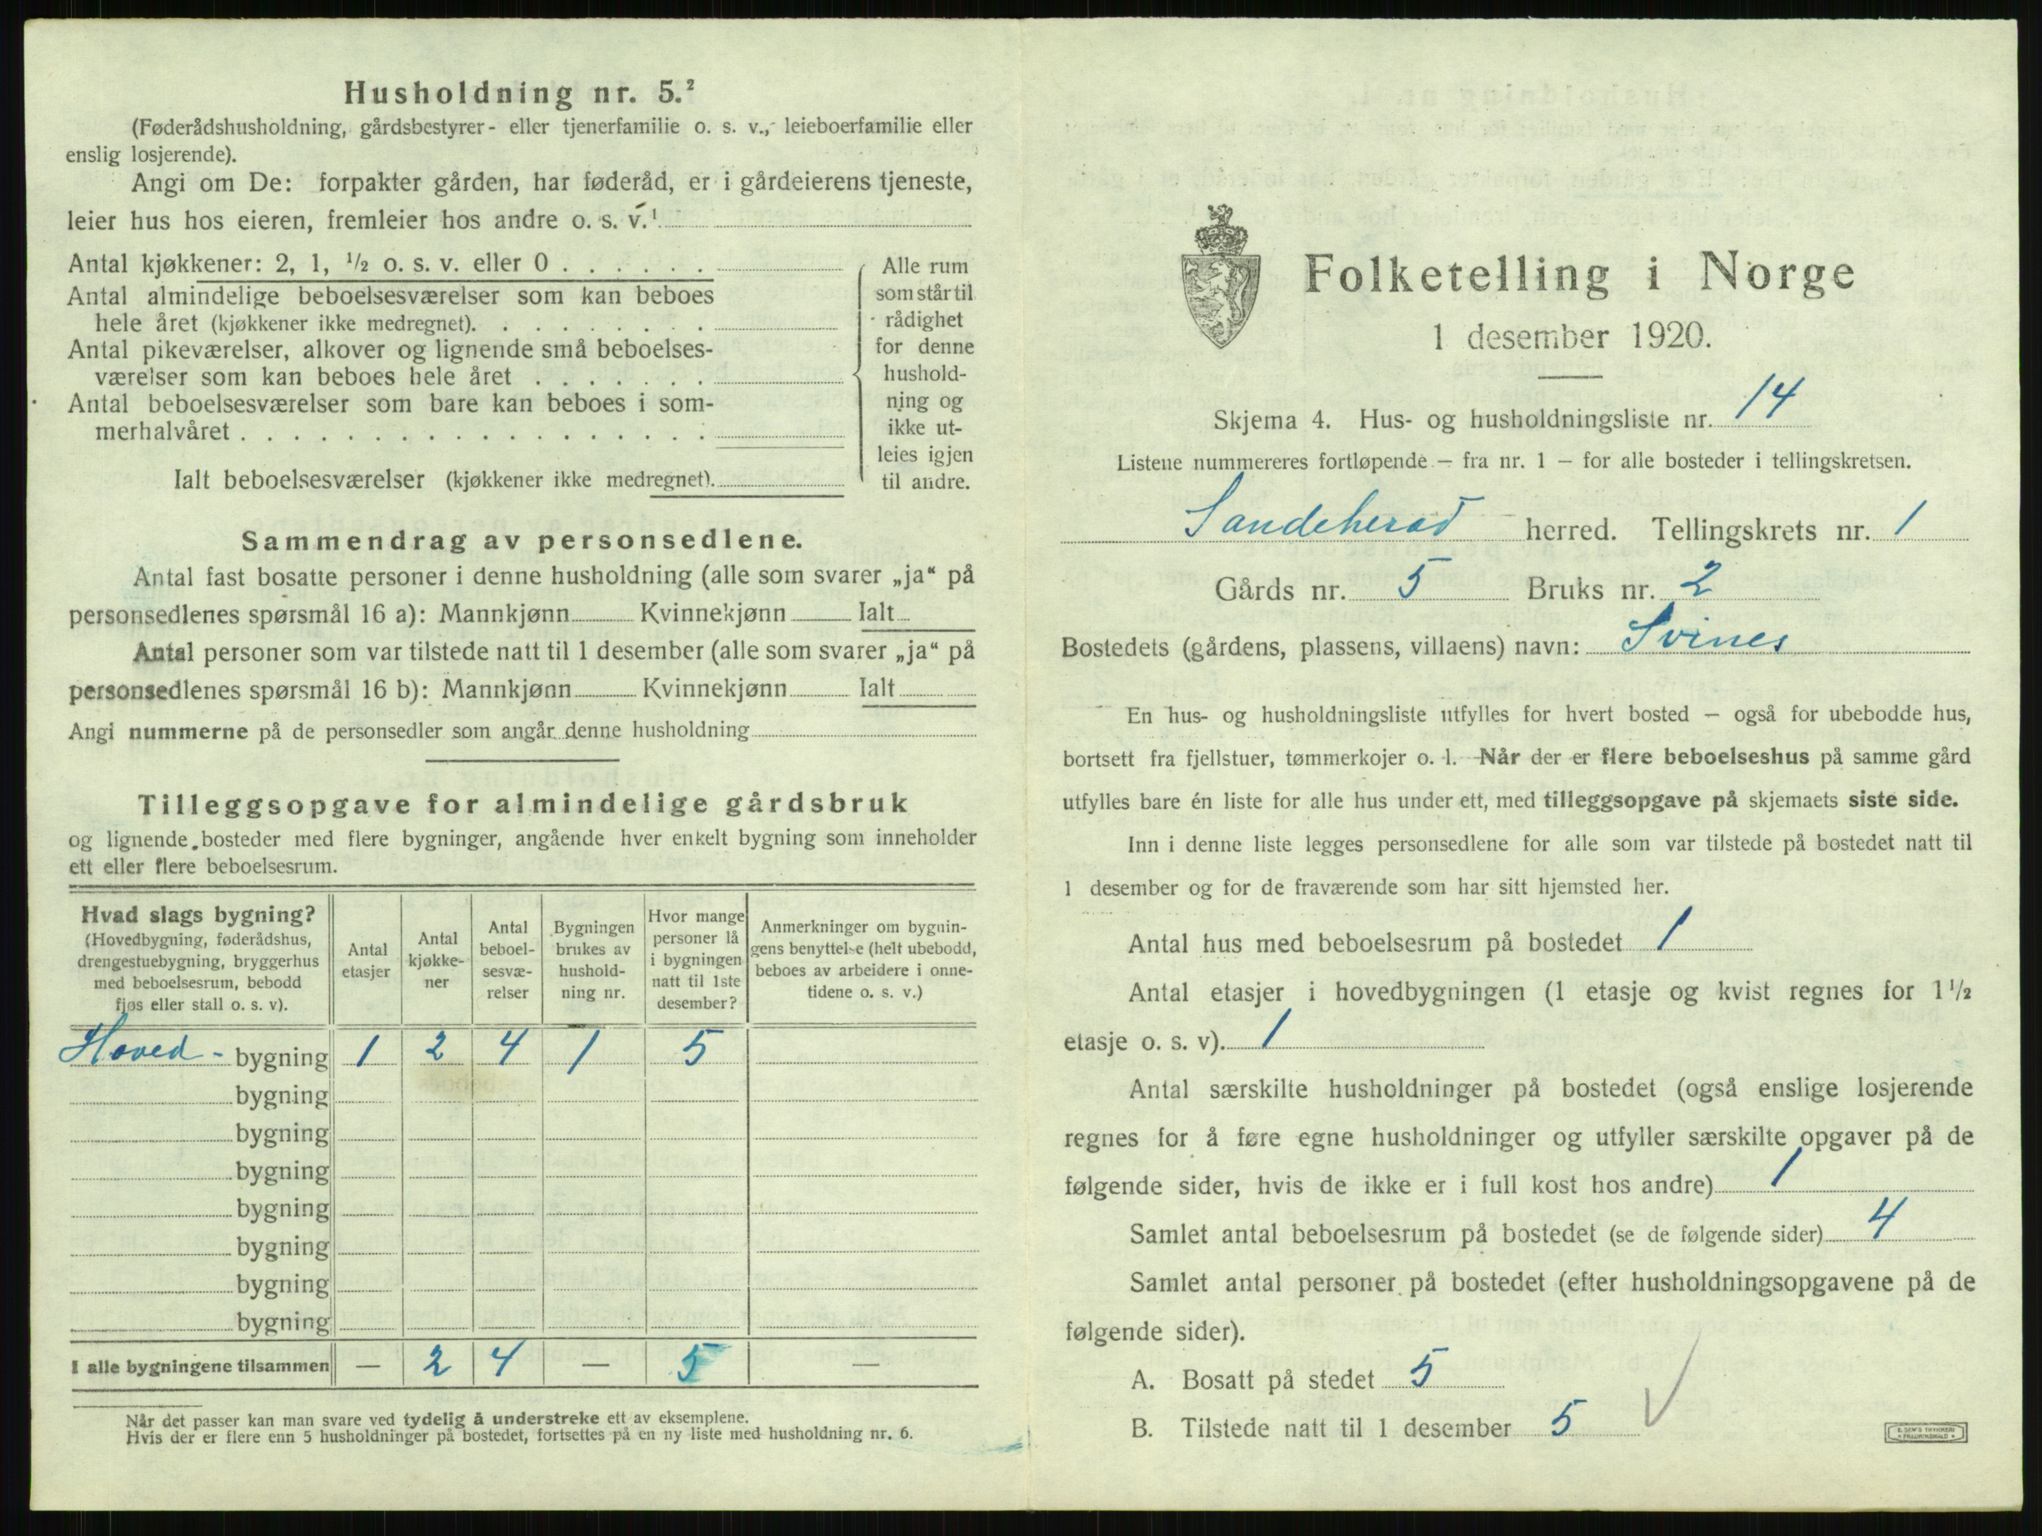 Husholdning nr. 5.²
(Føderådshusholdning, gårdsbestyrer- eller tjenerfamilie o. s. v., leieboerfamilie eller
enslig losjerende).
Angi om De: forpakter gården, har føderåd, er i gårdeierens tjeneste,
leier hus hos eieren, fremleier hos andre o. s. v.¹
Antal kjøkkener: 2, 1, ½ o. s. v. eller 0 . . . . . .
Antal almindelige beboelsesværelser som kan beboes
hele året (kjøkkener ikke medregnet). . . . . . . . .
Antal pikeværelser, alkover og lignende små beboelses-
værelser som kan beboes hele året . . . . . . .
Antal beboelsesværelser som bare kan beboes i som-
merhalvåret . . . . . . . . . . . . . . . . . .
Ialt beboelsesværelser (kjøkkener ikke medregnet).
Alle rum
som står til
rådighet
for denne
hushold-
ning og
ikke ut-
leies igjen
til andre.
Sammendrag av personsedlene.
Antal fast bosatte personer i denne husholdning (alle som svarer „ja“ på
personsedlenes spørsmål 16 a): Mannkjønn Kvinnekjønn Ialt
Antal personer som var tilstede natt til 1 desember (alle som svarer „ja“ på
personsedlenes spørsmål 16 b): Mannkjønn Kvinnekjønn Ialt
Angi nummerne på de personsedler som angår denne husholdning
Tilleggsopgave for almindelige gårdsbruk
og lignende bosteder med flere bygninger, angående hver enkelt bygning som inneholder
ett eller flere beboelsesrum.
Hvad slags bygning?
(Hovedbygning, føderådshus,
drengestuebygning, bryggerhus
med beboelsesrum, bebodd
fjøs eller stall o. s. v).
Antal
etasjer
Antal
kjøkke-
ner
Antal
beboel-
sesvæ-
relser
Bygningen
brukes av
hushold-
ning nr.
Hvor mange
personer lå
i bygningen
natt til 1ste
desember?
Anmerkninger om bygnin-
gens benyttelse (helt ubebodd,
beboes av arbeidere i onne-
tidene o. s. v.)
Hoved- bygning 1 2 4 1 5
bygning
bygning
bygning
bygning
bygning
bygning
bygning
I alle bygningene tilsammen — 2 4 — 5 —
Når det passer kan man svare ved tydelig å understreke ett av eksemplene.
Hvis der er flere enn 5 husholdninger på bostedet, fortsettes på en ny liste med husholdning nr. 6.
Folketelling i Norge
1 desember 1920.
Skjema 4. Hus- og husholdningsliste nr. 14
Listene nummereres fortløpende — fra nr. 1 — for alle bosteder i tellingskretsen.
Sandeherad herred. Tellingskrets nr. 1
Gårds nr. 5 Bruks nr. 2
Bostedets (gårdens, plassens, villaens) navn: Svines
En hus- og husholdningsliste utfylles for hvert bosted — også for ubebodde hus,
bortsett fra fjellstuer, tømmerkojer o. l. Når der er flere beboelseshus på samme gård
utfylles bare én liste for alle hus under ett, med tilleggsopgave på skjemaets siste side.
Inn i denne liste legges personsedlene for alle som var tilstede på bostedet natt til
1 desember og for de fraværende som har sitt hjemsted her.
Antal hus med beboelsesrum på bostedet 1
Antal etasjer i hovedbygningen (1 etasje og kvist regnes for 1½
etasje o. s. v). 1
Antal særskilte husholdninger på bostedet (også enslige losjerende
regnes for å føre egne husholdninger og utfyller særskilte opgaver på de
følgende sider, hvis de ikke er i full kost hos andre) 1
Samlet antal beboelsesrum på bostedet (se de følgende sider) 4
Samlet antal personer på bostedet (efter husholdningsopgavene på de
følgende sider).
A. Bosatt på stedet 5
B. Tilstede natt til 1 desember 5